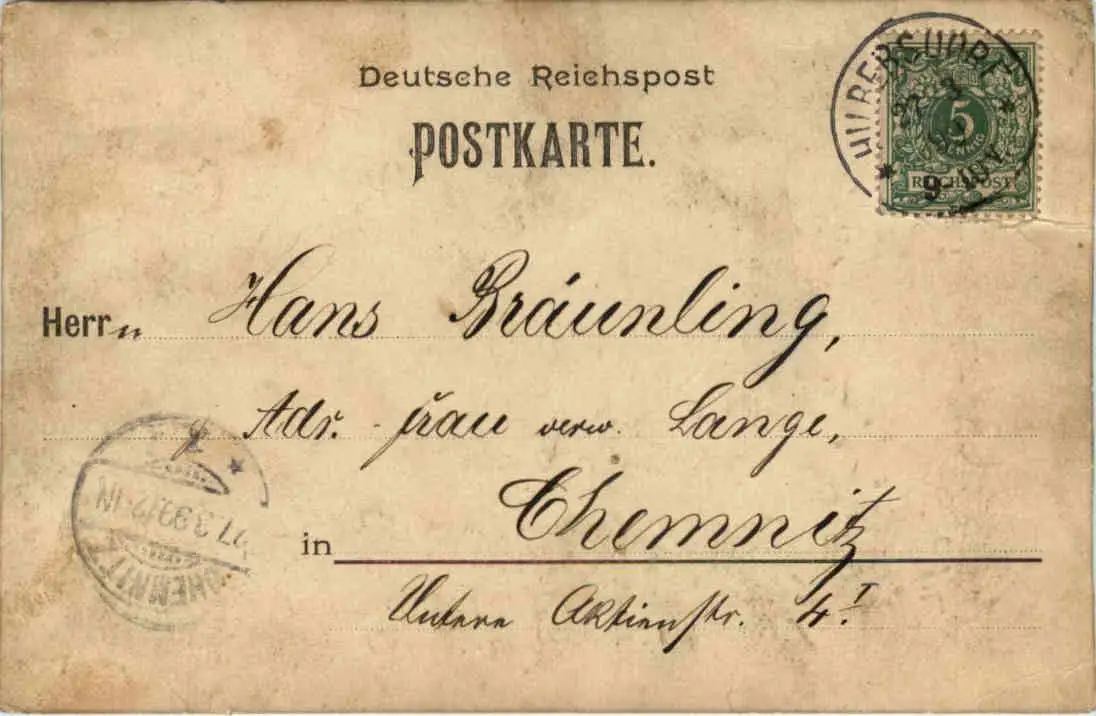 Deutsche Reichspost
POSTKARTE.
HILBERSDORF
27 3
9-10V.
5
REICHSPOST
Herrn Hans Bräunling,
Adr. Frau verw. Lange,
in Chemnitz
Untere Aktienstr. 4.I
CHEMNITZ
27.3.99.12-1N.